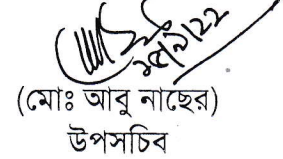 (মোঃ আবু নাছের)
উপসচিব